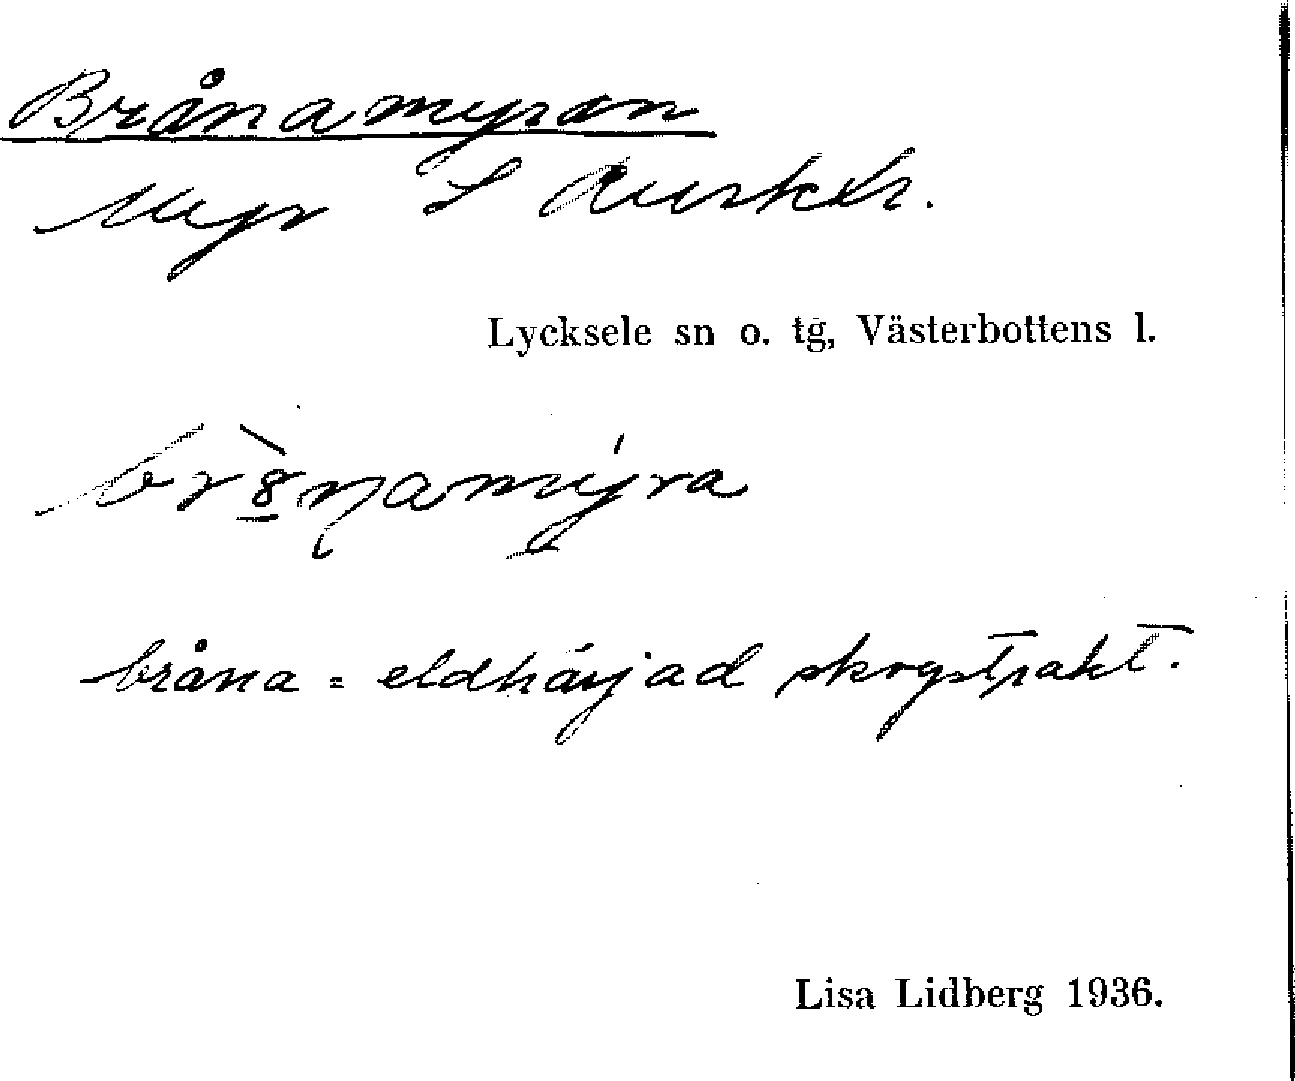 Brånamyran
Myr S
Lycksele sn o. tg, Västerbottens l.
bråna = eldhärjad skogstrakt.
Lisa Lidberg 1936.